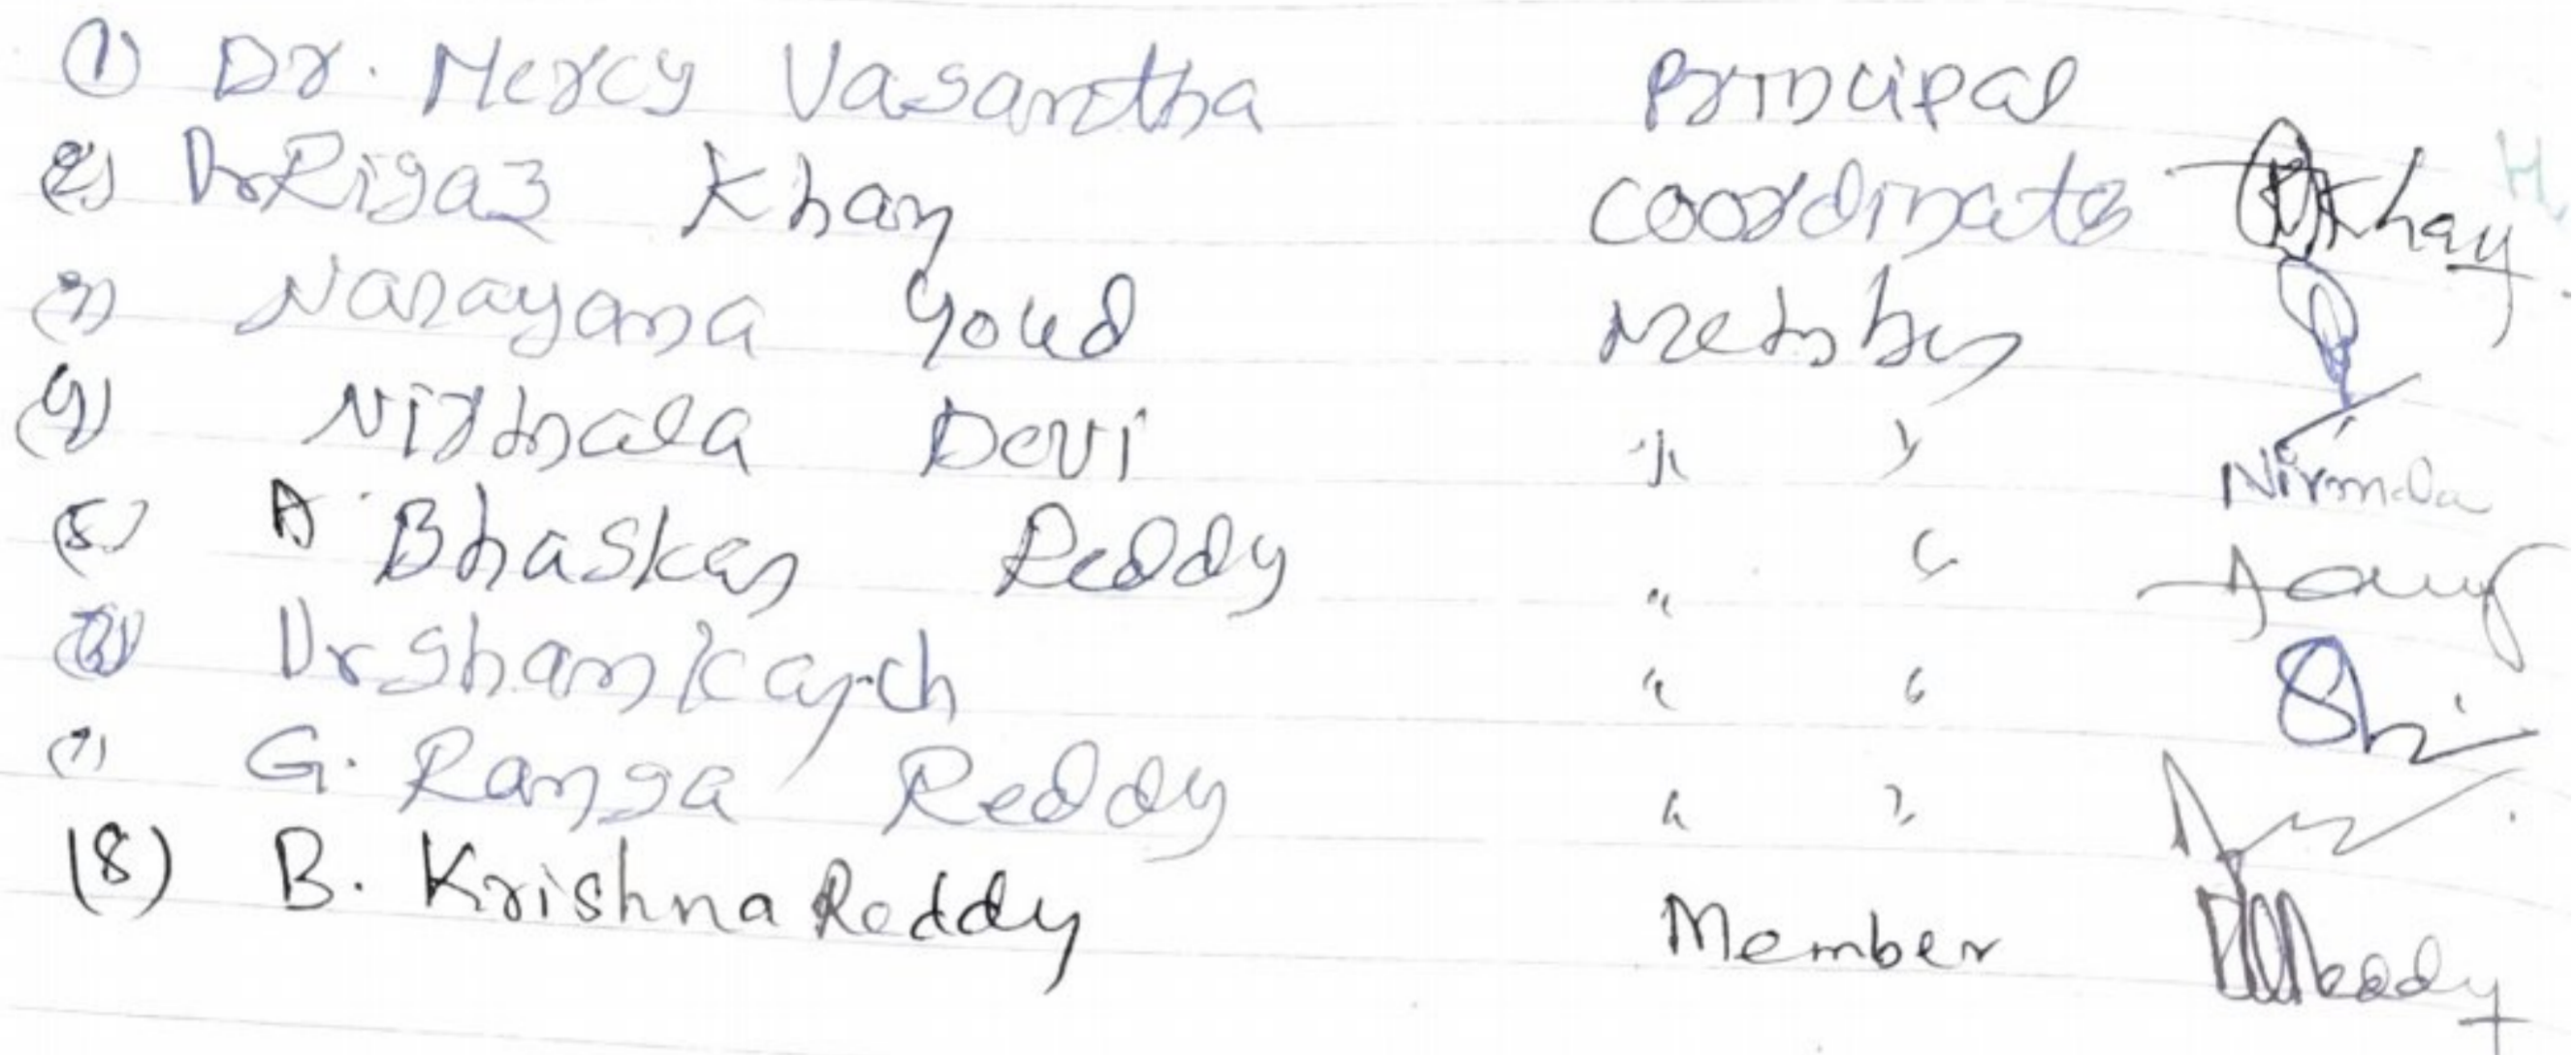 (1) Dr. Mercy Vasantha Principal
(2) Dr Riyaz Khan Coordinator Khan
(3) Narayana Goud Member
(4) Nirmala Devi " " Nirmala
(5) A Bhaskar Reddy " "
(6) Dr Shankar ch " "
(7) G. Ranga Reddy " "
(8) B. Krishna Reddy Member